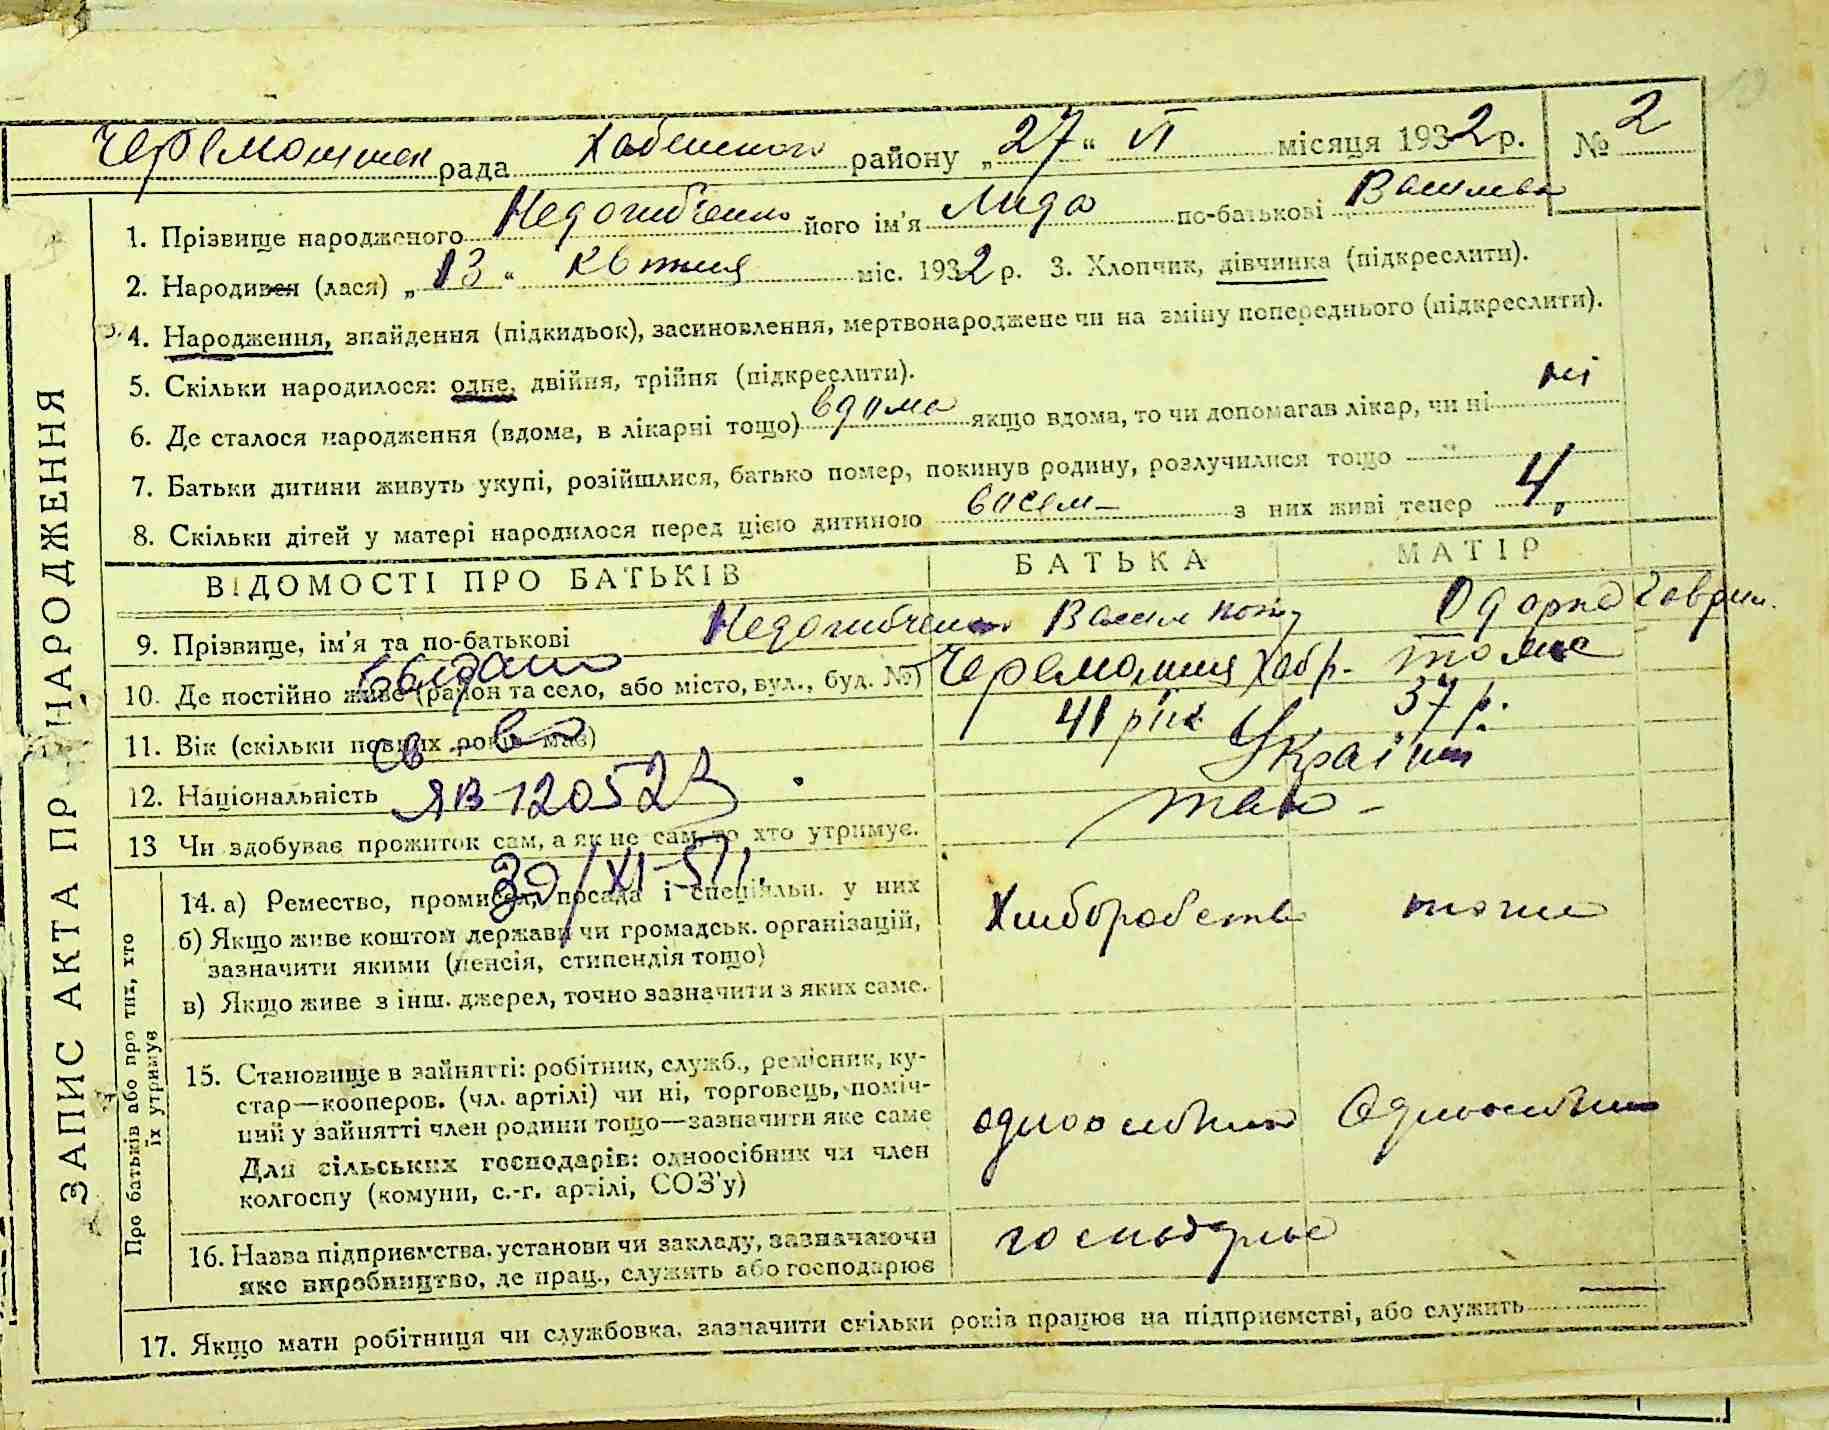 рада району „27“ VI місяця 1932 р. № 2
ЗАПИС АКТА ПР НАРОДЖЕННЯ
1. Прізвище народженого його ім'я Лида по-батькові
2. Народився (лася) „13“ міс. 1932 р. 3. Хлопчик, дівчинка (підкреслити).
4. Народження, знайдення (підкидьок), засиновлення, мертвонароджене чи на зміну попереднього (підкреслити).
5. Скільки народилося: одне, двійня, трійня (підкреслити).
6. Де сталося народження (вдома, в лікарні тощо) вдома якщо вдома, то чи допомагав лікар, чи ні ні
7. Батьки дитини живуть укупі, розійшлися, батько помер, покинув родину, розлучилися тощо
8. Скільки дітей у матері народилося перед цією дитиною восем з них живі тепер 4
ВІДОМОСТІ ПРО БАТЬКІВ БАТЬКА МАТІР
9. Прізвище, ім'я та по-батькові Одарка
10. Де постійно живе (район та село, або місто, вул., буд. №)
11. Вік (скільки повних років має) 41 рік 37 р.
св во
12. Національність
ЯВ 120523
13 Чи здобуває прожиток сам, а як не сам, то хто утримує.
30/XI-51
Про батьків або про тих, хто їх утримує
14. а) Ремество, промисел, посада і спеціяльн. у них
б) Якщо живе коштом держави чи громадськ. організацій,
зазначити якими (пенсія, стипендія тощо)
в) Якщо живе з інш. джерел, точно зазначити з яких саме.
15. Становище в зайнятті: робітник, служб., ремісник, ку-
стар—кооперов. (чл. артілі) чи ні, торговець, поміч-
ний у зайнятті член родини тощо—зазначити яке саме
Для сільських господарів: одноосібник чи член
колгоспу (комуни, с.-г. артілі, СОЗ'у)
16. Назва підприємства, установи чи закладу, зазначаючи
яке виробництво, де прац., служить або господарює
17. Якщо мати робітниця чи службовка, зазначити скільки років працює на підприємстві, або служить —